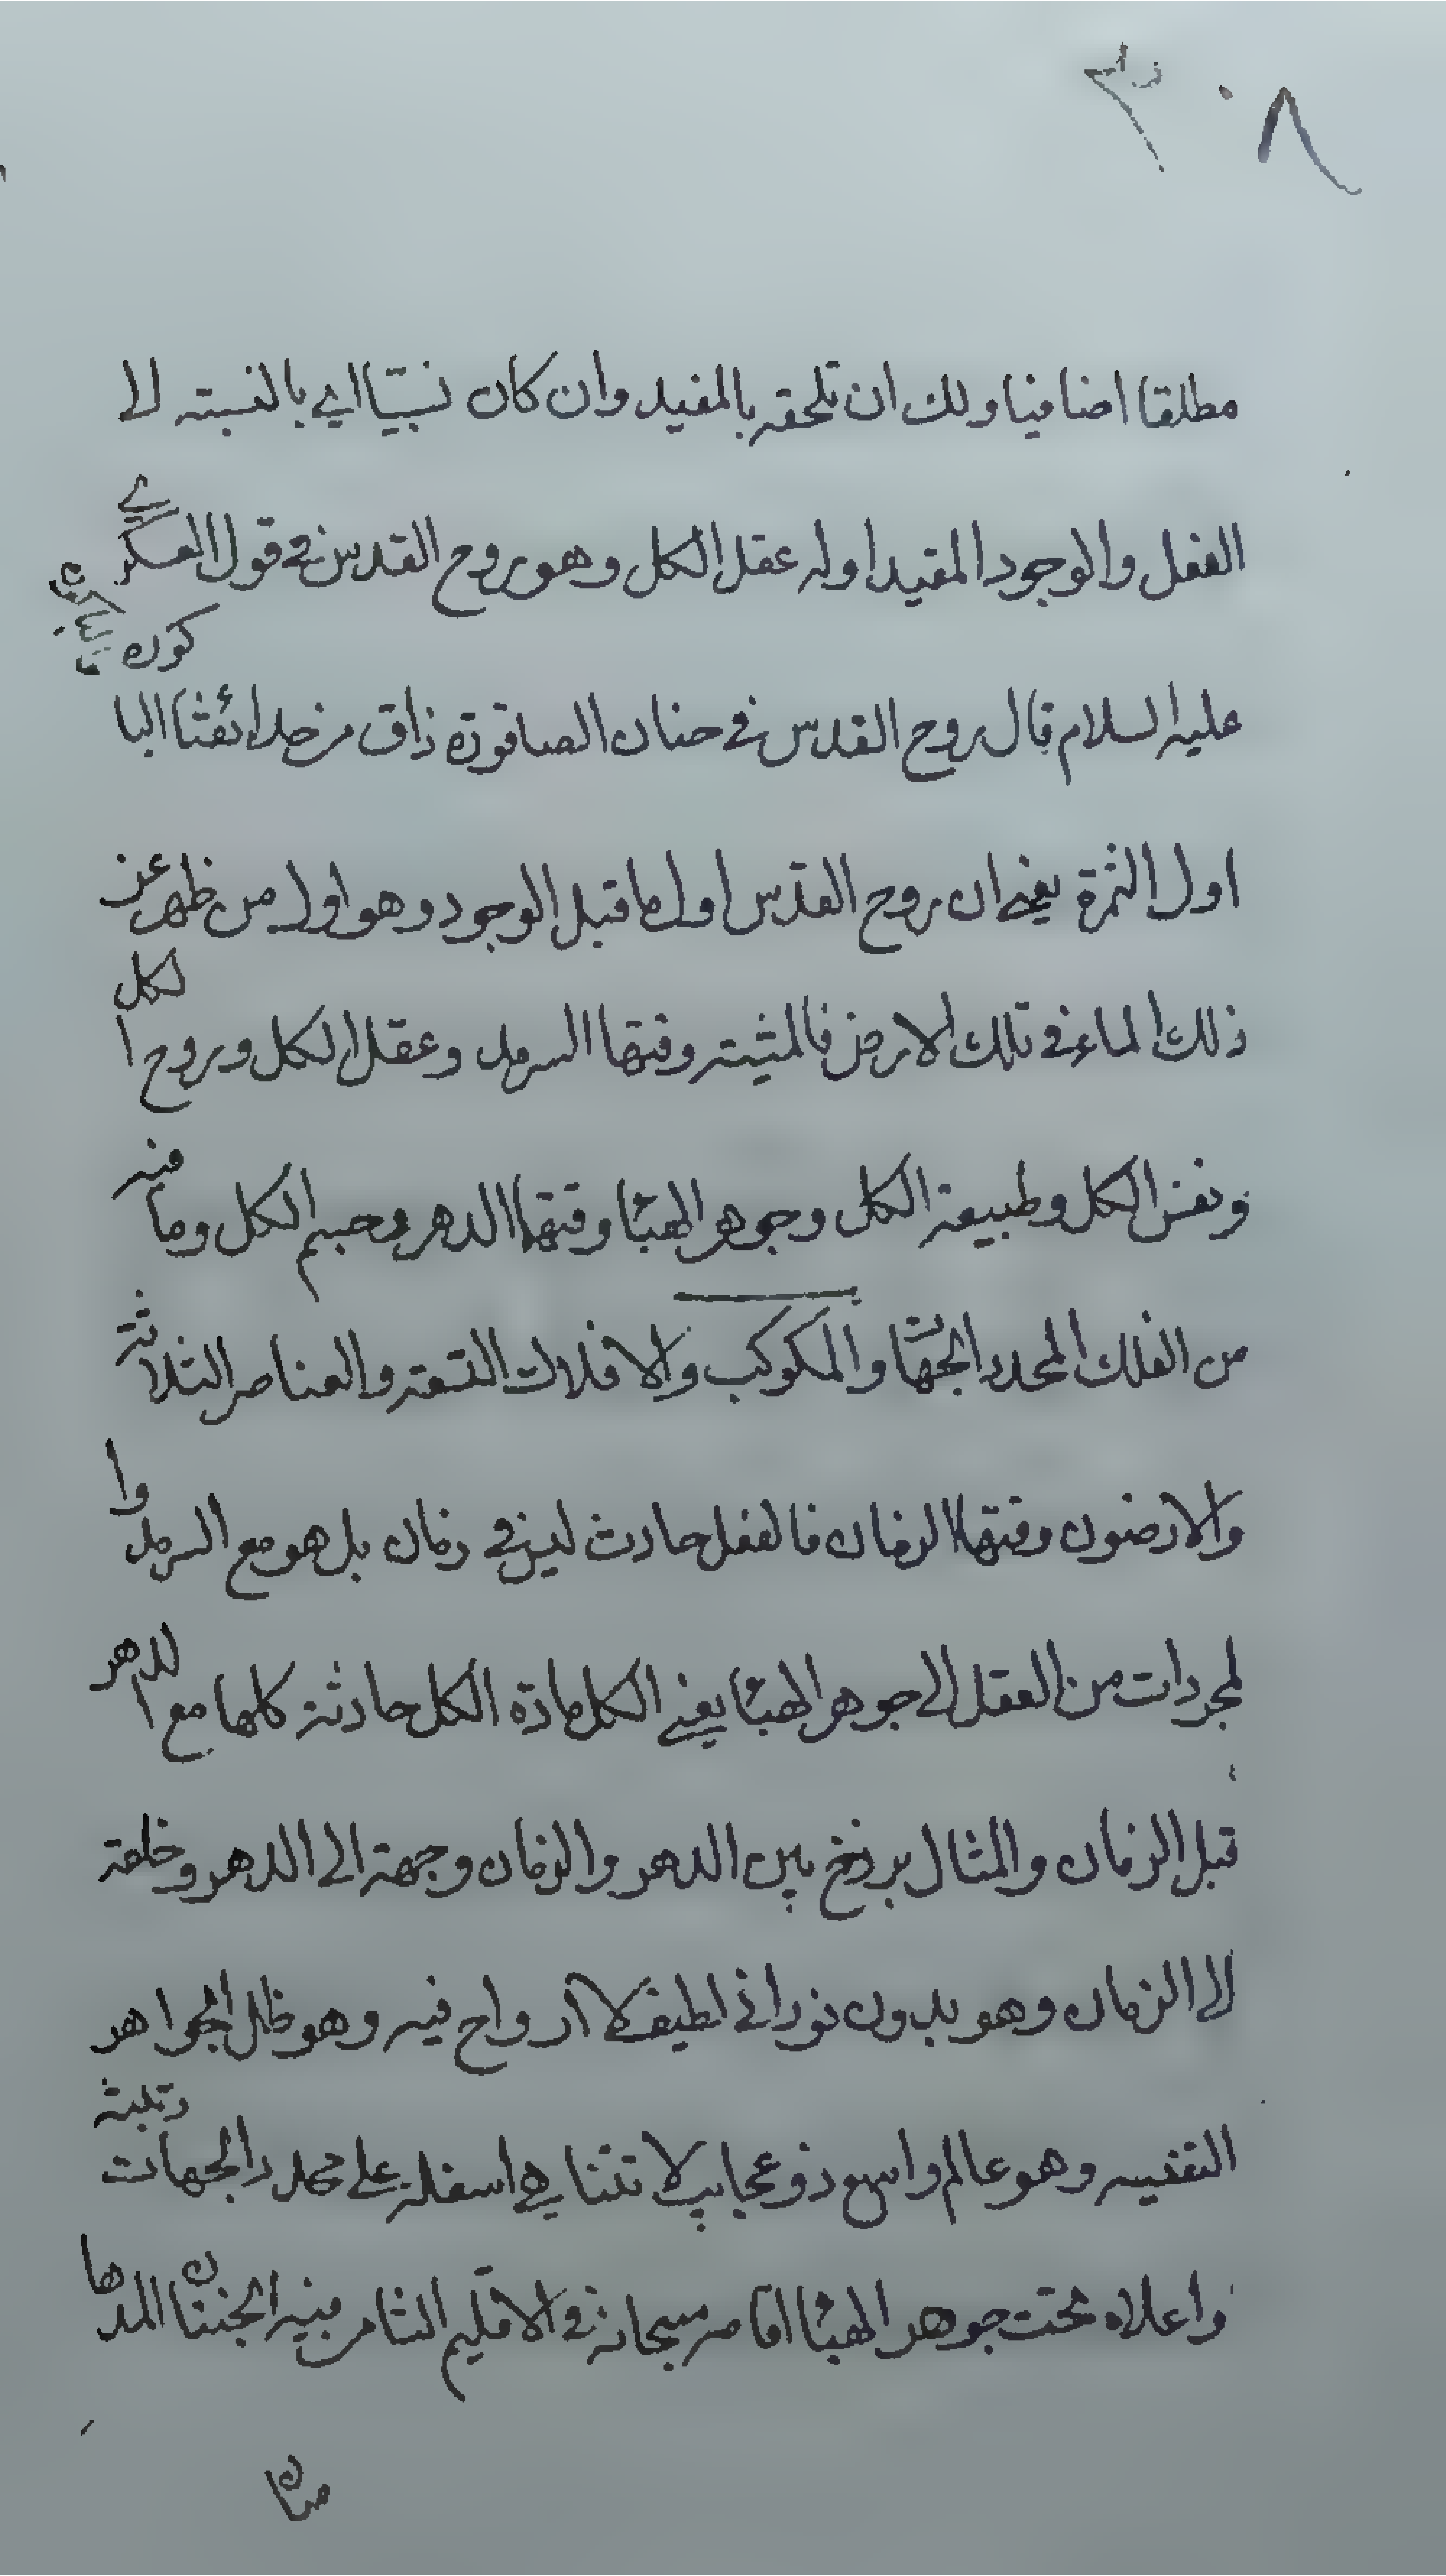 ٣٠٨
مطلقا اضافيا ولك ان تلحقه بالمقيد وان كان نسبيّا اي بالنسبة الا
الفعل والوجود المقيد اوله عقل الكل وهو روح القدس في قول العسكري
عليه السلام قال روح القدس في جنان الصاقورة ذاق من حدائقنا الباكورة
اول الثمرة يعني ان روح القدس اول ما قبل الوجود وهو اول من ظهر عن
ذلك الماء في تلك الارض فالمشية وقتها السرمد وعقل الكل وروح الكل
ونفس الكل وطبيعة الكل وجوهر الهباء وقتها الدهر وجسم الكل وما فيه
من الفلك المحدد الجهات والمكوكب والافلاك التسعة والعناصر الثلاثة
والارضون وقتها الزمان فالفعل حادث ليس في زمان بل هو مع السرمد وا
لمجردات من العقل الى جوهر الهباء يعني الكل مادة الكل حادثة كلها مع الدهر
قبل الزمان والمثال برزخ بين الدهر والزمان وجهة الى الدهر وخلفه
الى الزمان وهو بدون نوراني لطيف لا ارواح فيه وهو ظل الجواهر
النفسيه وهو عالم واسع ذو عجايب لا تتناهي اسفله على محدد الجهات رتبة
واعلاه تحت جوهر الهباء اقامه سبحانه في الاقليم الثامن فيه الجنتان المدها
متان